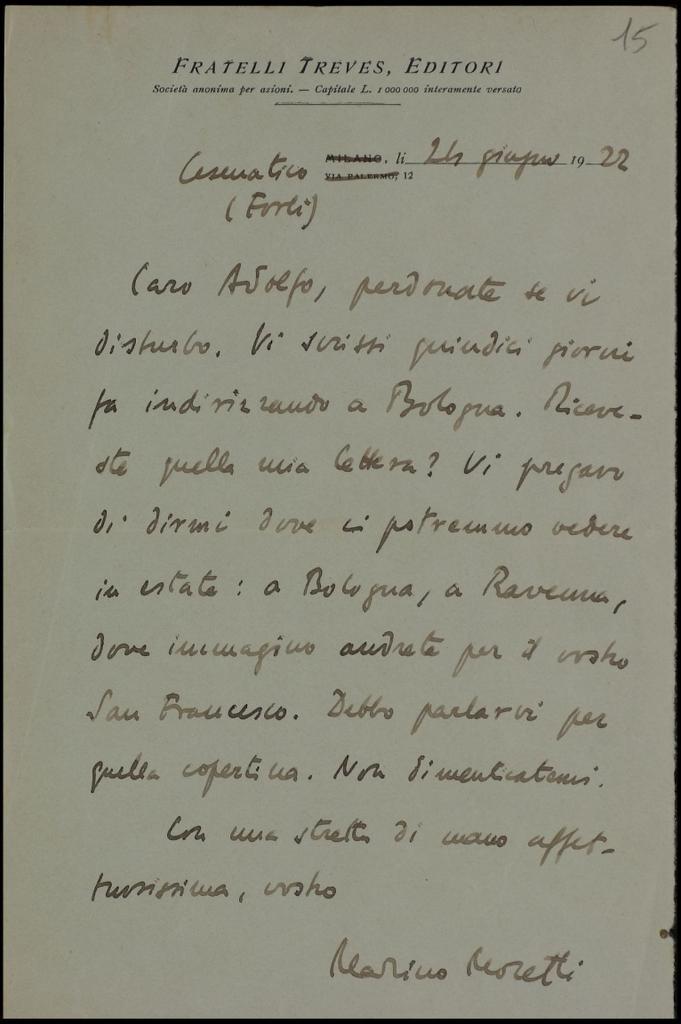 15
FRATELLI TREVES, EDITORI
Società anonima per azioni. — Capitale L. 1 000 000 interamente versato
Cesenatico MILANO, li 24 giugno 1922
(Forlì) VIA PALERMO, 12
Caro Adolfo, perdonate se vi
disturbo. Vi scrissi quindici giorni
fa indirizzando a Bologna. Riceve-
ste quella mia lettera? Vi pregavo
di dirmi dove ci potremmo vedere
in estate: a Bologna, a Ravenna,
dove immagino andrete per il vostro
San Francesco. Debbo parlarvi per
quella copertina. Non dimenticatemi.
Con una stretta di mano affet-
tuosissima, vostro
Marino Moretti